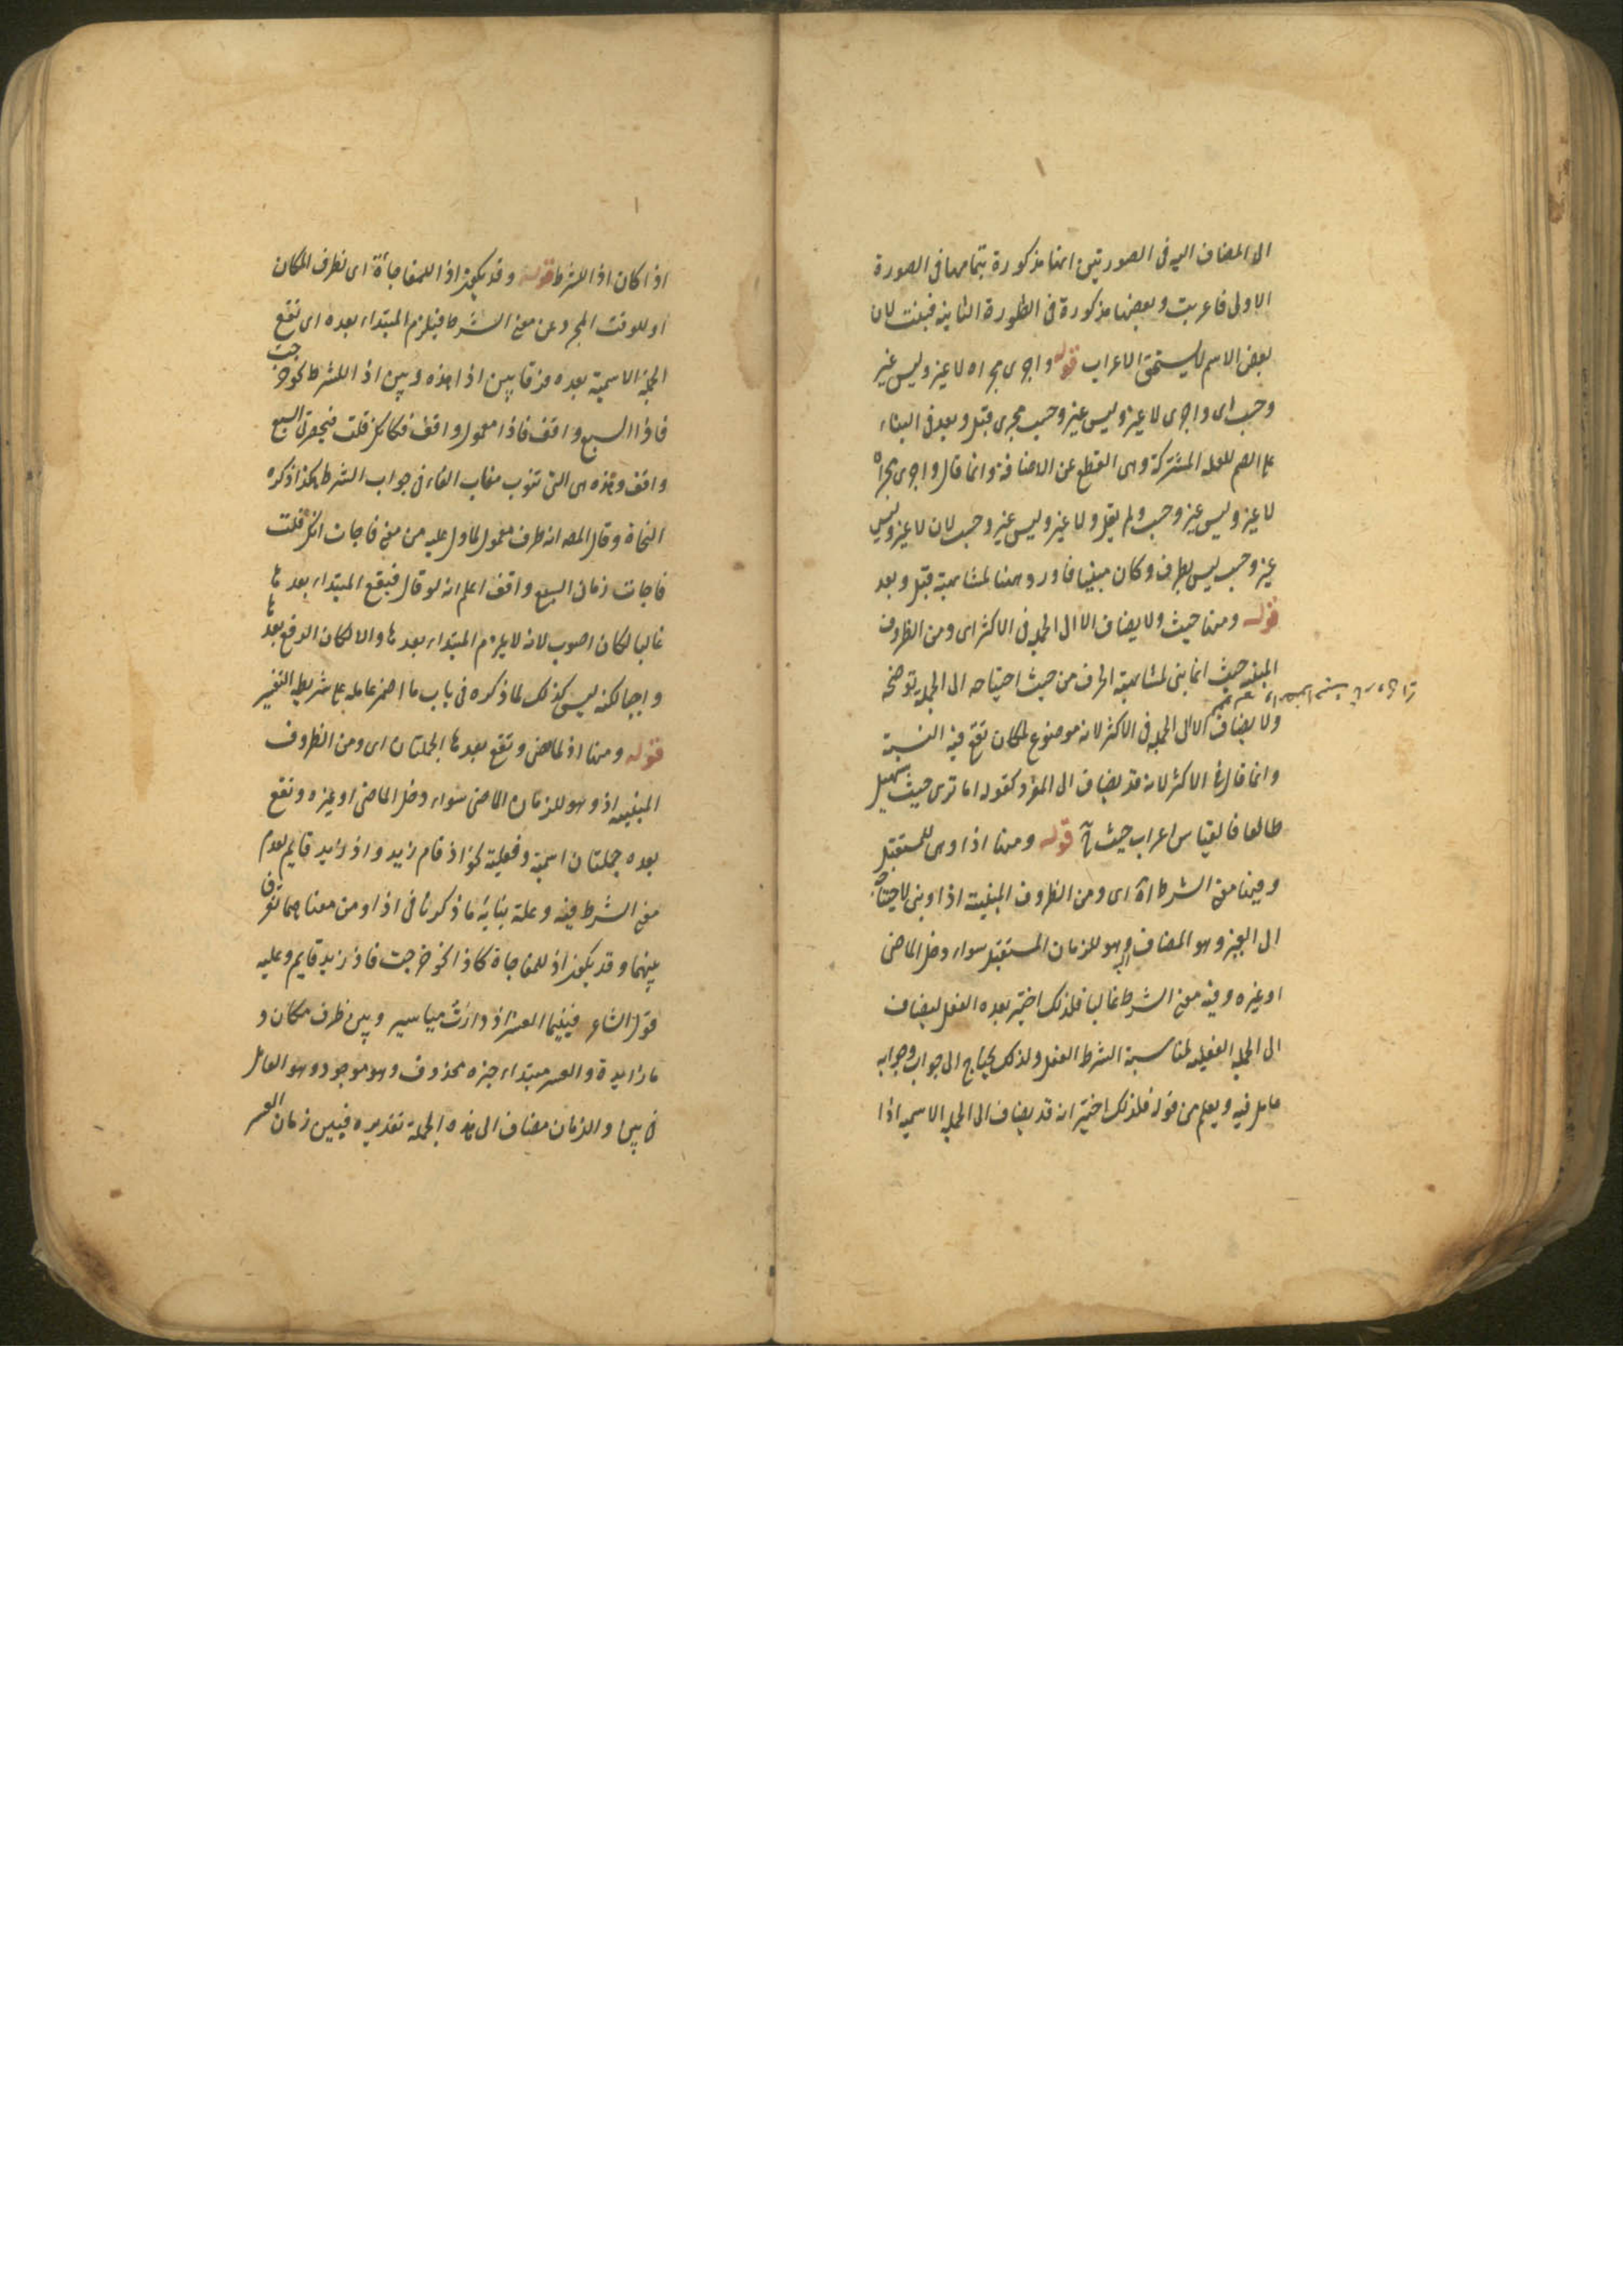 الى المضاف اليه فى الصورتين انها مذكورة بتمامها فى الصورة
الاولى فاعربت وبعضها مذكورة فى الصورة الثانية فبنيت لان
بعض الاسم لا يستحق الاعراب قوله واجرى مجراه لا غير وليس غير
وحسب اى واجرى لا غير وليس غير وحسب مجرى قبل وبعد فى البناء
على الضم للعلة المشتركة وهى القطع عن الاضافة وانما قال واجرى مجراه
لا غير وليس غير وحسب ولم يقل ولا غير وليس غير وحسب لان لا غير وليس
غير وحسب ليس بظرف وكان مبنيا فاورد ههنا لمشابهة قبل وبعد
قوله ومنها حيث ولا يضاف الا الى الجملة فى الاكثر اى ومن الظروف
المبنية حيث انما بنى لمشابهة الحرف من حيث احتياجه الى الجملة توضحه
ولا يضاف الا الى الجملة فى الاكثر لانه موضوع لمكان تقع فيه النسبة
وانما قال فى الاكثر لانه قد يضاف الى المفرد كقوله اما ترى حيث سهيل
طالعا فالقياس اعراب حيث قوله ومنها اذا وهى للمستقبل
وفيها معنى الشرط اه اى ومن الظروف المبنية اذا وبنى لاحتياجه
الى الغير وهو المضاف اليه وهو للزمان المستقبل سواء دخل الماضى
او غيره وفيه معنى الشرط غالبا فلذلك اختير بعده الفعل ليضاف
الى الجملة الفعلية لمناسبة الشرط الفعل ولذلك يحتاج الى جواب وجوابه
عامل فيه ويعلم من قوله فلذلك اختير انه قد يضاف الى الجملة الاسمية اذا
اذا كان اذا للشرط قوله وقد يكون اذا للمفاجأة اى لظرف المكان
او للوقت المجرد عن معنى الشرط فيلزم المبتداء بعده اى تقع
الجملة الاسمية بعده فرقا بين اذا هذه وبين اذا للشرط نحو خرجت
فاذا السبع واقف فاذا معمول واقف فكانك قلت فبحضرتى السبع
واقف وهذه هى التى تنوب مناب الفاء فى جواب الشرط هكذا ذكره
النحاة وقال المصـ انه ظرف معمول لما دل عليه من معنى فاجات كانك قلت
فاجات زمان السبع واقف اعلم انه لو قال فيقع المبتداء بعدها
غالبا لكان اصوب لانه لا يلزم المبتداء بعدها والا لكان الرفع بعدها
واجبا لكنه ليس كذلك لما ذكره فى باب ما اضمر عامله على شريطة التفسير
قوله ومنها اذ لما مضى وتقع بعدها الجملتان اى ومن الظروف
المبنية اذ وهو للزمان الماضى سواء دخل الماضى او غيره وتقع
بعده جملتان اسمية وفعلية نحو اذ قام زيد واذ زيد قايم لعدم
معنى الشرط فيه وعلة بنايه ما ذكرنا فى اذا ومن معناهما تعرف
بينهما وقد يكون اذ للمفاجاة كاذا نحو خرجت فاذ زيد قايم وعليه
قول الشاعر فبينما العسر اذ دارت مياسير وبين ظرف مكان و
ما زايدة والعسر مبتداء خبره محذوف وهو موجود وهو العامل
فى بين او الزمان مضاف الى هذه الجملة تقديره فبين زمان العسر